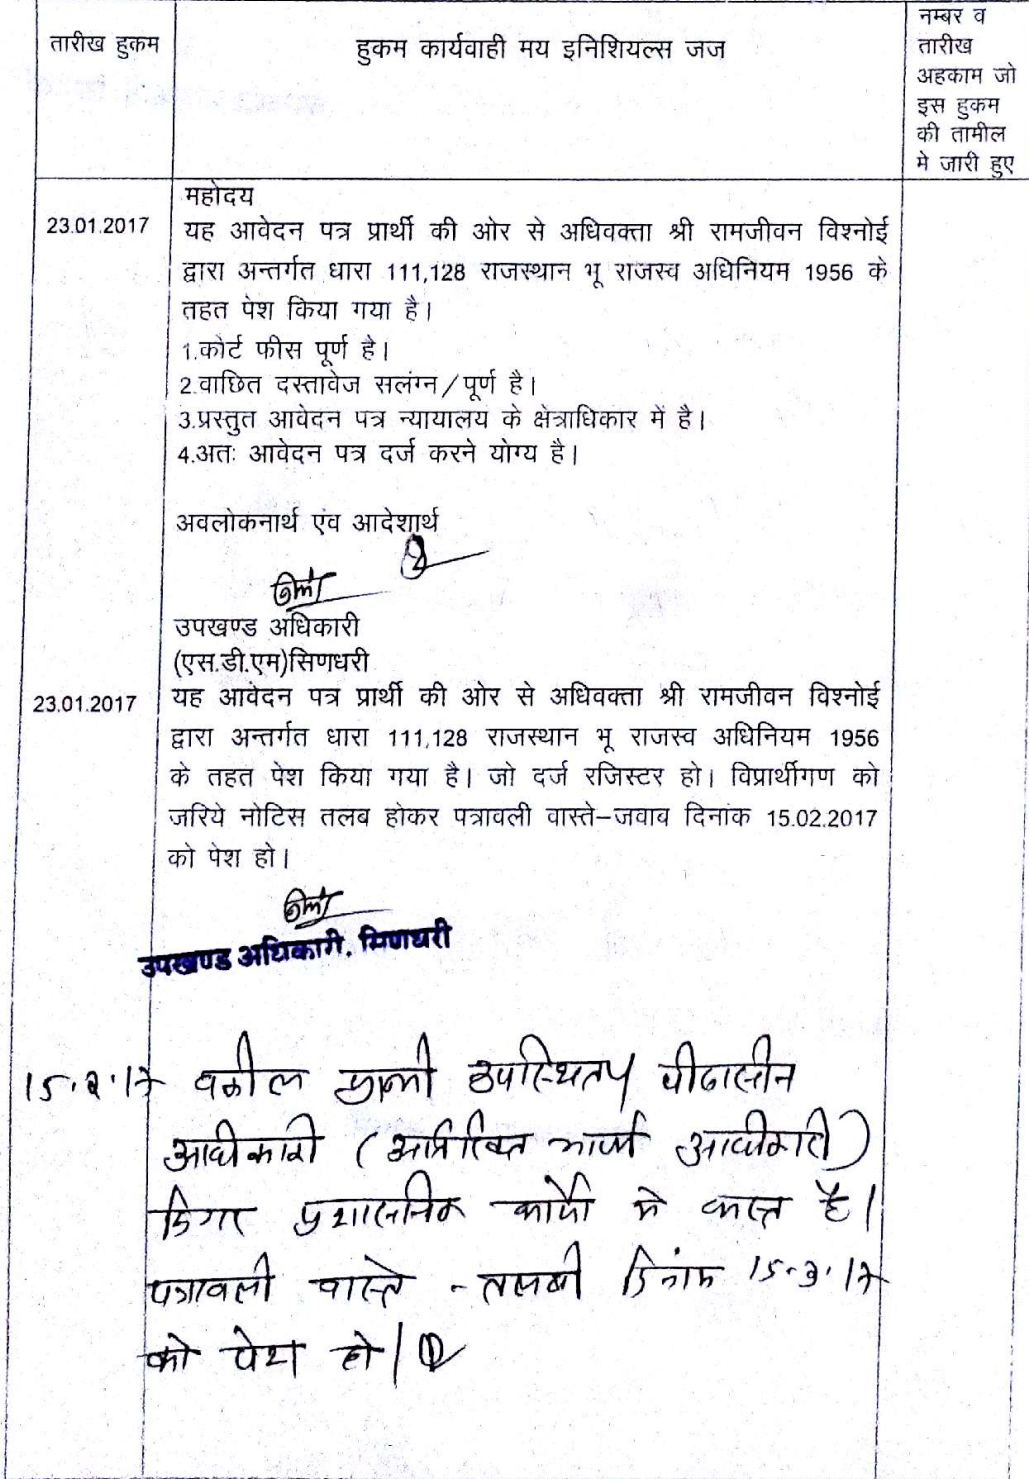 तारीख हुकम
हुकम कार्यवाही मय इनिशियल्स जज
नम्बर व
तारीख
अहकाम जो
इस हुकम
की तामील
मे जारी हुए
महोदय
23.01.2017
यह आवेदन पत्र प्रार्थी की ओर से अधिवक्ता श्री रामजीवन विश्नोई
द्वारा अन्तर्गत धारा 111,128 राजस्थान भू राजस्व अधिनियम 1956 के
तहत पेश किया गया है।
1.कोर्ट फीस पूर्ण है।
2.वाछित दस्तावेज सलंग्न/पूर्ण है।
3.प्रस्तुत आवेदन पत्र न्यायालय के क्षेत्राधिकार में है।
4.अतः आवेदन पत्र दर्ज करने योग्य है।
अवलोकनार्थ एंव आदेशार्थ
उपखण्ड अधिकारी
(एस.डी.एम)सिणधरी
23.01.2017
यह आवेदन पत्र प्रार्थी की ओर से अधिवक्ता श्री रामजीवन विश्नोई
द्वारा अन्तर्गत धारा 111,128 राजस्थान भू राजस्व अधिनियम 1956
के तहत पेश किया गया है। जो दर्ज रजिस्टर हो। विप्रार्थीगण को
जरिये नोटिस तलब होकर पत्रावली वास्ते-जवाव दिनांक 15.02.2017
को पेश हो।
उपखण्ड अधिकारी, सिणधरी
15.2.17 वकील प्रार्थी उपस्थित। पीठासीन
अधिकारी (अतिरिक्त कार्य अधिकारी)
प्रशासनिक कार्यो मे व्यस्त है।
पत्रावली वास्ते - तलबी दिनांक 15.3.17
को पेश हो।